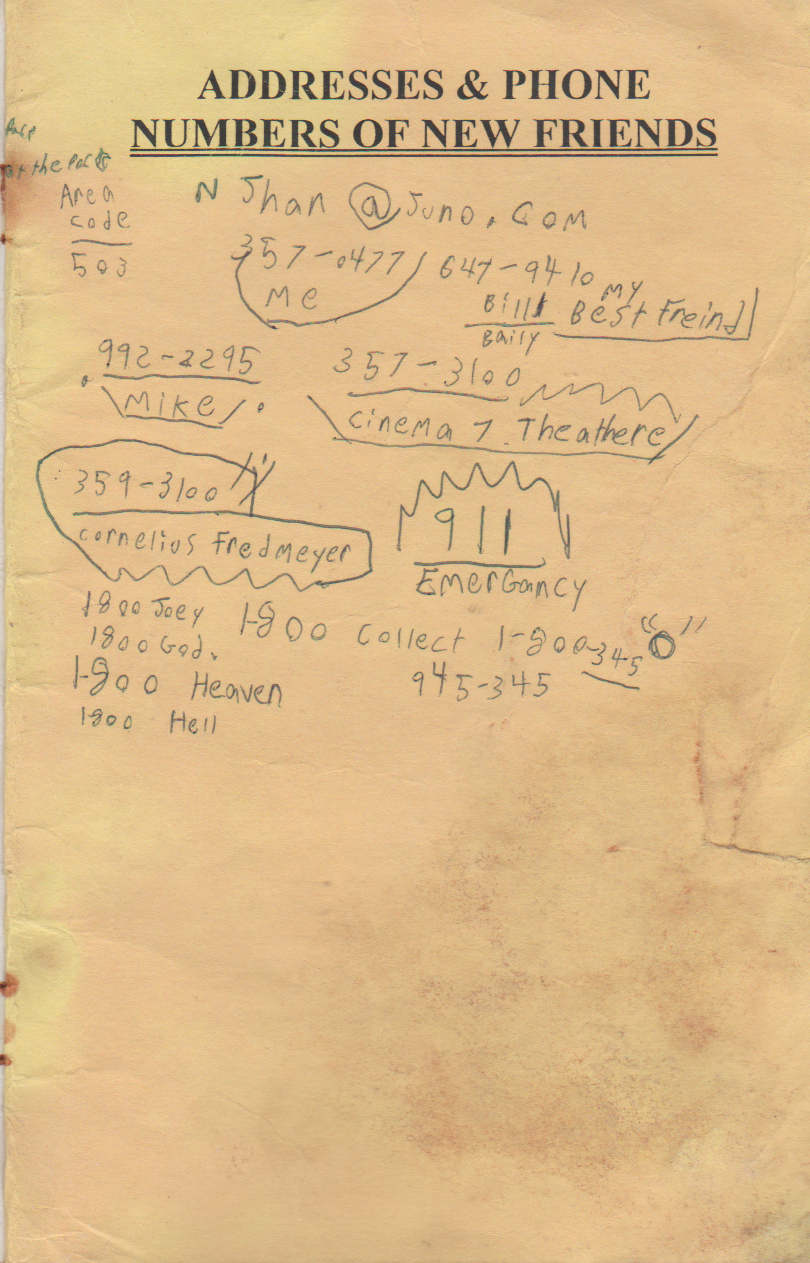 ADDRESSES & PHONE
NUMBERS OF NEW FRIENDS
at the Park
Area
code
503
N Jhan @ Juno. Com
357-0477
Me
647-9410
Bill
Baily
My
Best Freind
992-2295
Mike
357-3100
cinema 7 Theathere
359-3100
cornelius Fredmeyer
911
EmerGancy
1800 Joey
1800 God.
1-800 Heaven
1800 Hell
1-800 Collect
1-800-345 "O"
945-345